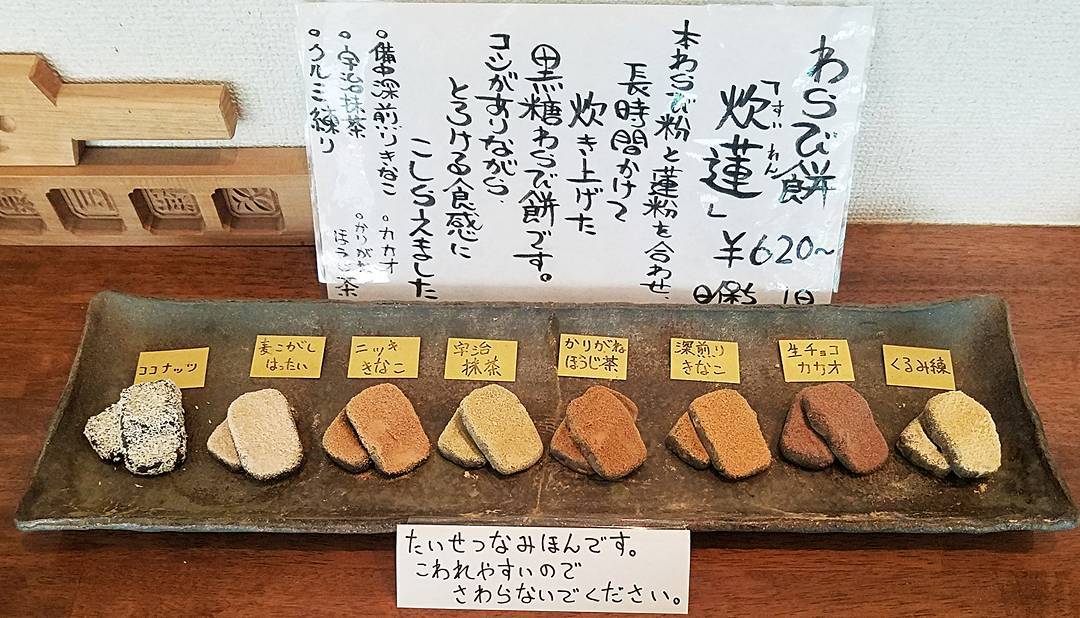 わらび餅
「炊蓮」
すい れん
¥620～
日保ち 1日
本わらび粉と蓮粉を合わせ、
長時間かけて
炊き上げた
黒糖わらび餅です。
コシがありながら、
とろける食感に
こしらえました
○備中深煎りきなこ
○宇治抹茶
○クルミ練り
○カカオ
○かりがね
ほうじ茶
ココナッツ
麦こがし
はったい
ニッキ
きなこ
宇治
抹茶
かりがね
ほうじ茶
深煎り
きなこ
生チョコ
カカオ
くるみ練
たいせつなみほんです。
こわれやすいので
さわらないでください。